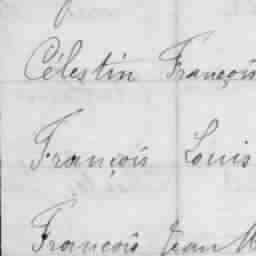 Célestin François
François Louis
François Jean